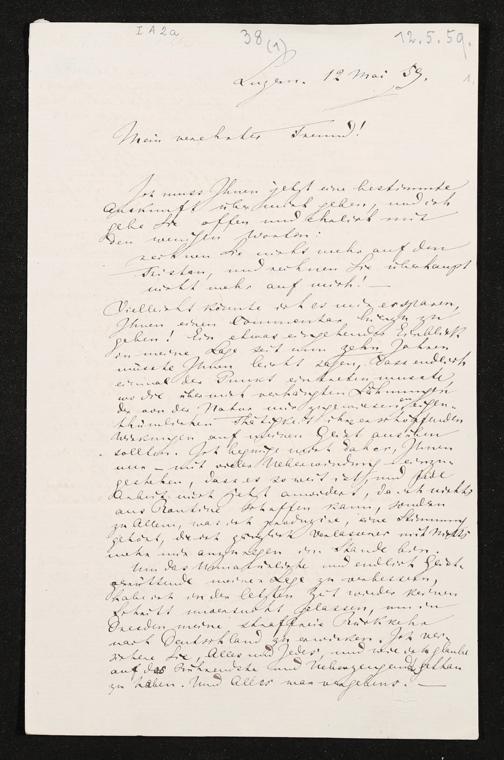 I A 2a
38(1)
12.5.59.
1.
Luzern. 12 Mai 59.
Mein verehrter Freund!
Ich muss Ihnen jetzt eine bestimmte
Auskunft über mich geben, und ich
gebe Sie offen und ehrlich mit
den wenigen Worten:
rechnen Sie nicht mehr auf den
Tristan, und rechnen Sie überhaupt
nicht mehr auf mich! —
Vielleicht könnte ich es mir ersparen,
Ihnen einen Commentar hierzu zu
geben! Ein etwas eingehender Einblick
in meine Lage seit nun zehn Jahren
müsste Ihnen leicht sagen, dass endlich
einmal der Punkt eintreten musste
wo die über mich verhängten Lähmungen
der von der Natur mir zugewiesenen eigen-
thümlichen Thätigkeit ihre erschöpfenden
Wirkungen auf meinen Geist ausüben
sollten. Ich begnüge mich daher, Ihnen
nur — mit vieler Ueberwindung — einzu-
gestehen, dass es so weit ist, und jede
Arbeit mich jetzt anwidert, da ich nichts
aus Routine schaffen kann, sondern
zu Allem, was ich produzire, eine Stimmung
gehört, die ich gänzlich Verlassener mit Nichts
mehr mir anzuregen im Stande bin.
Um das Unnatürliche und endlich Geist-
zerrüttende meiner Lage zu verbessern,
habe ich in der letzten Zeit wieder keinen
Schritt unversucht gelassen, um in
Dresden meine straffreie Rückkehr
nach Deutschland zu erwirken. Ich ver-
sichere Sie, Alles und Jedes, und wie ich glaube
auf das Rührendste und Ueberzeugendste gethan
zu haben. Und Alles war vergebens. —